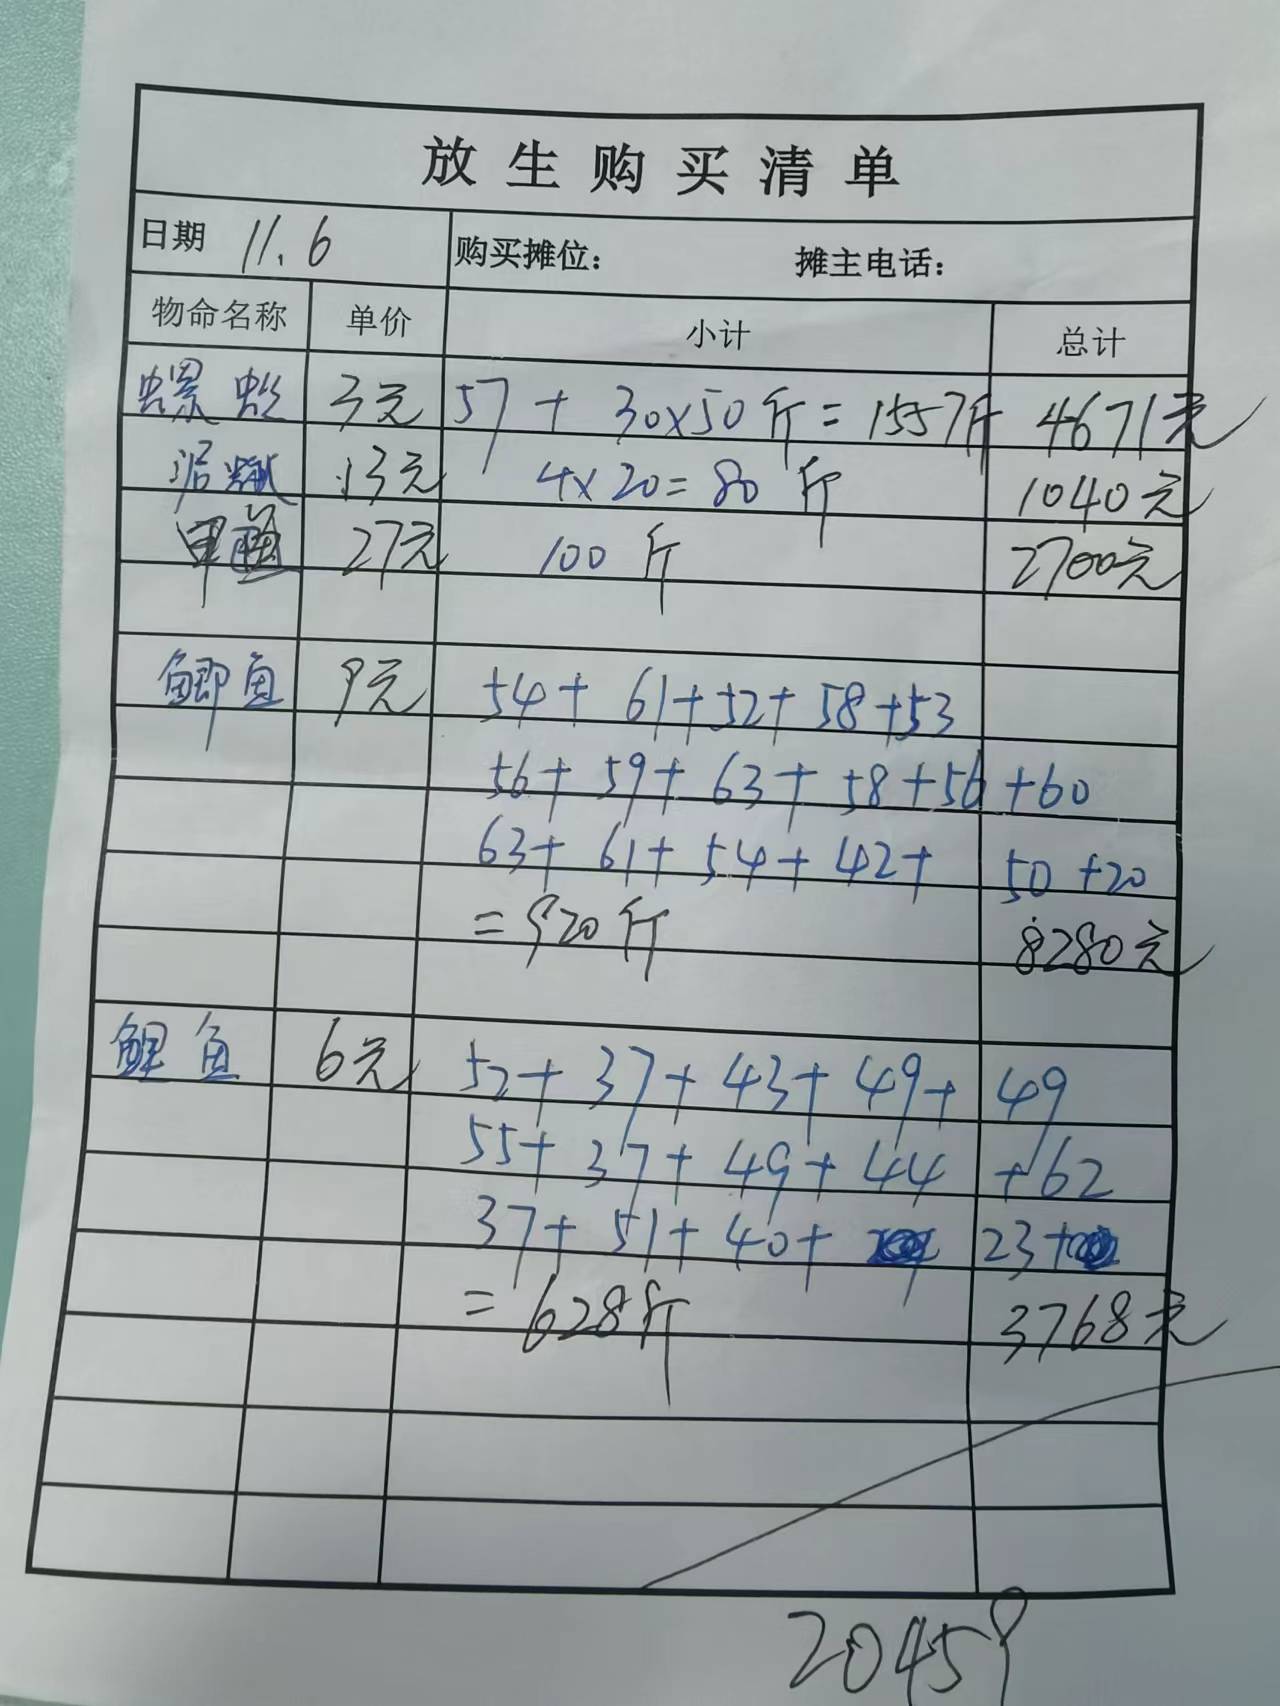 放生购买清单
日期 11.6 购买摊位： 摊主电话：
物命名称 单价 小计 总计
螺蛳 3元 57+30×50斤=1557斤 4671元
泥鳅 13元 4×20=80斤 1040元
甲鱼 27元 100斤 2700元
鲫鱼 9元 54+61+52+58+53
56+59+63+58+56+60
63+61+54+42+50+20
=920斤 8280元
鲤鱼 6元 52+37+43+49+49
55+37+49+44+62
37+51+40+23+
=628斤 3768元
20459